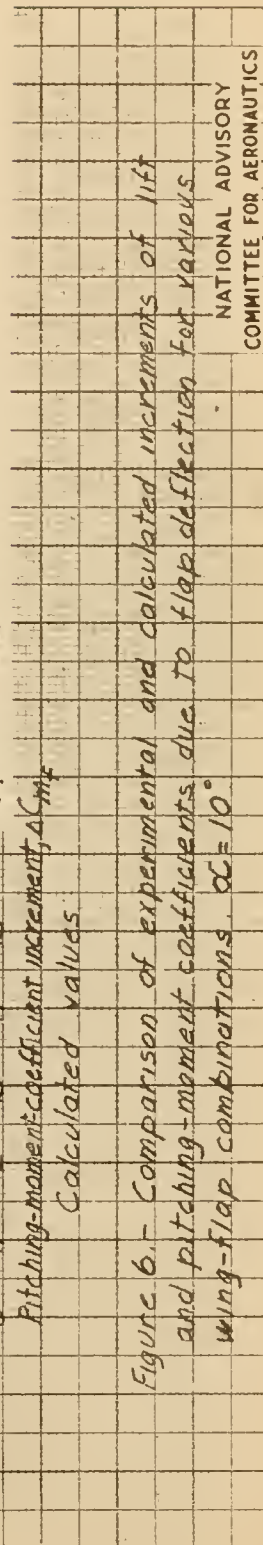 Pitching-moment-coefficient increment, ΔCmf
Calculated values
Figure 6.- Comparison of experimental and calculated increments of lift
and pitching-moment coefficients due to flap deflection for various
wing-flap combinations. α=10°
NATIONAL ADVISORY
COMMITTEE FOR AERONAUTICS